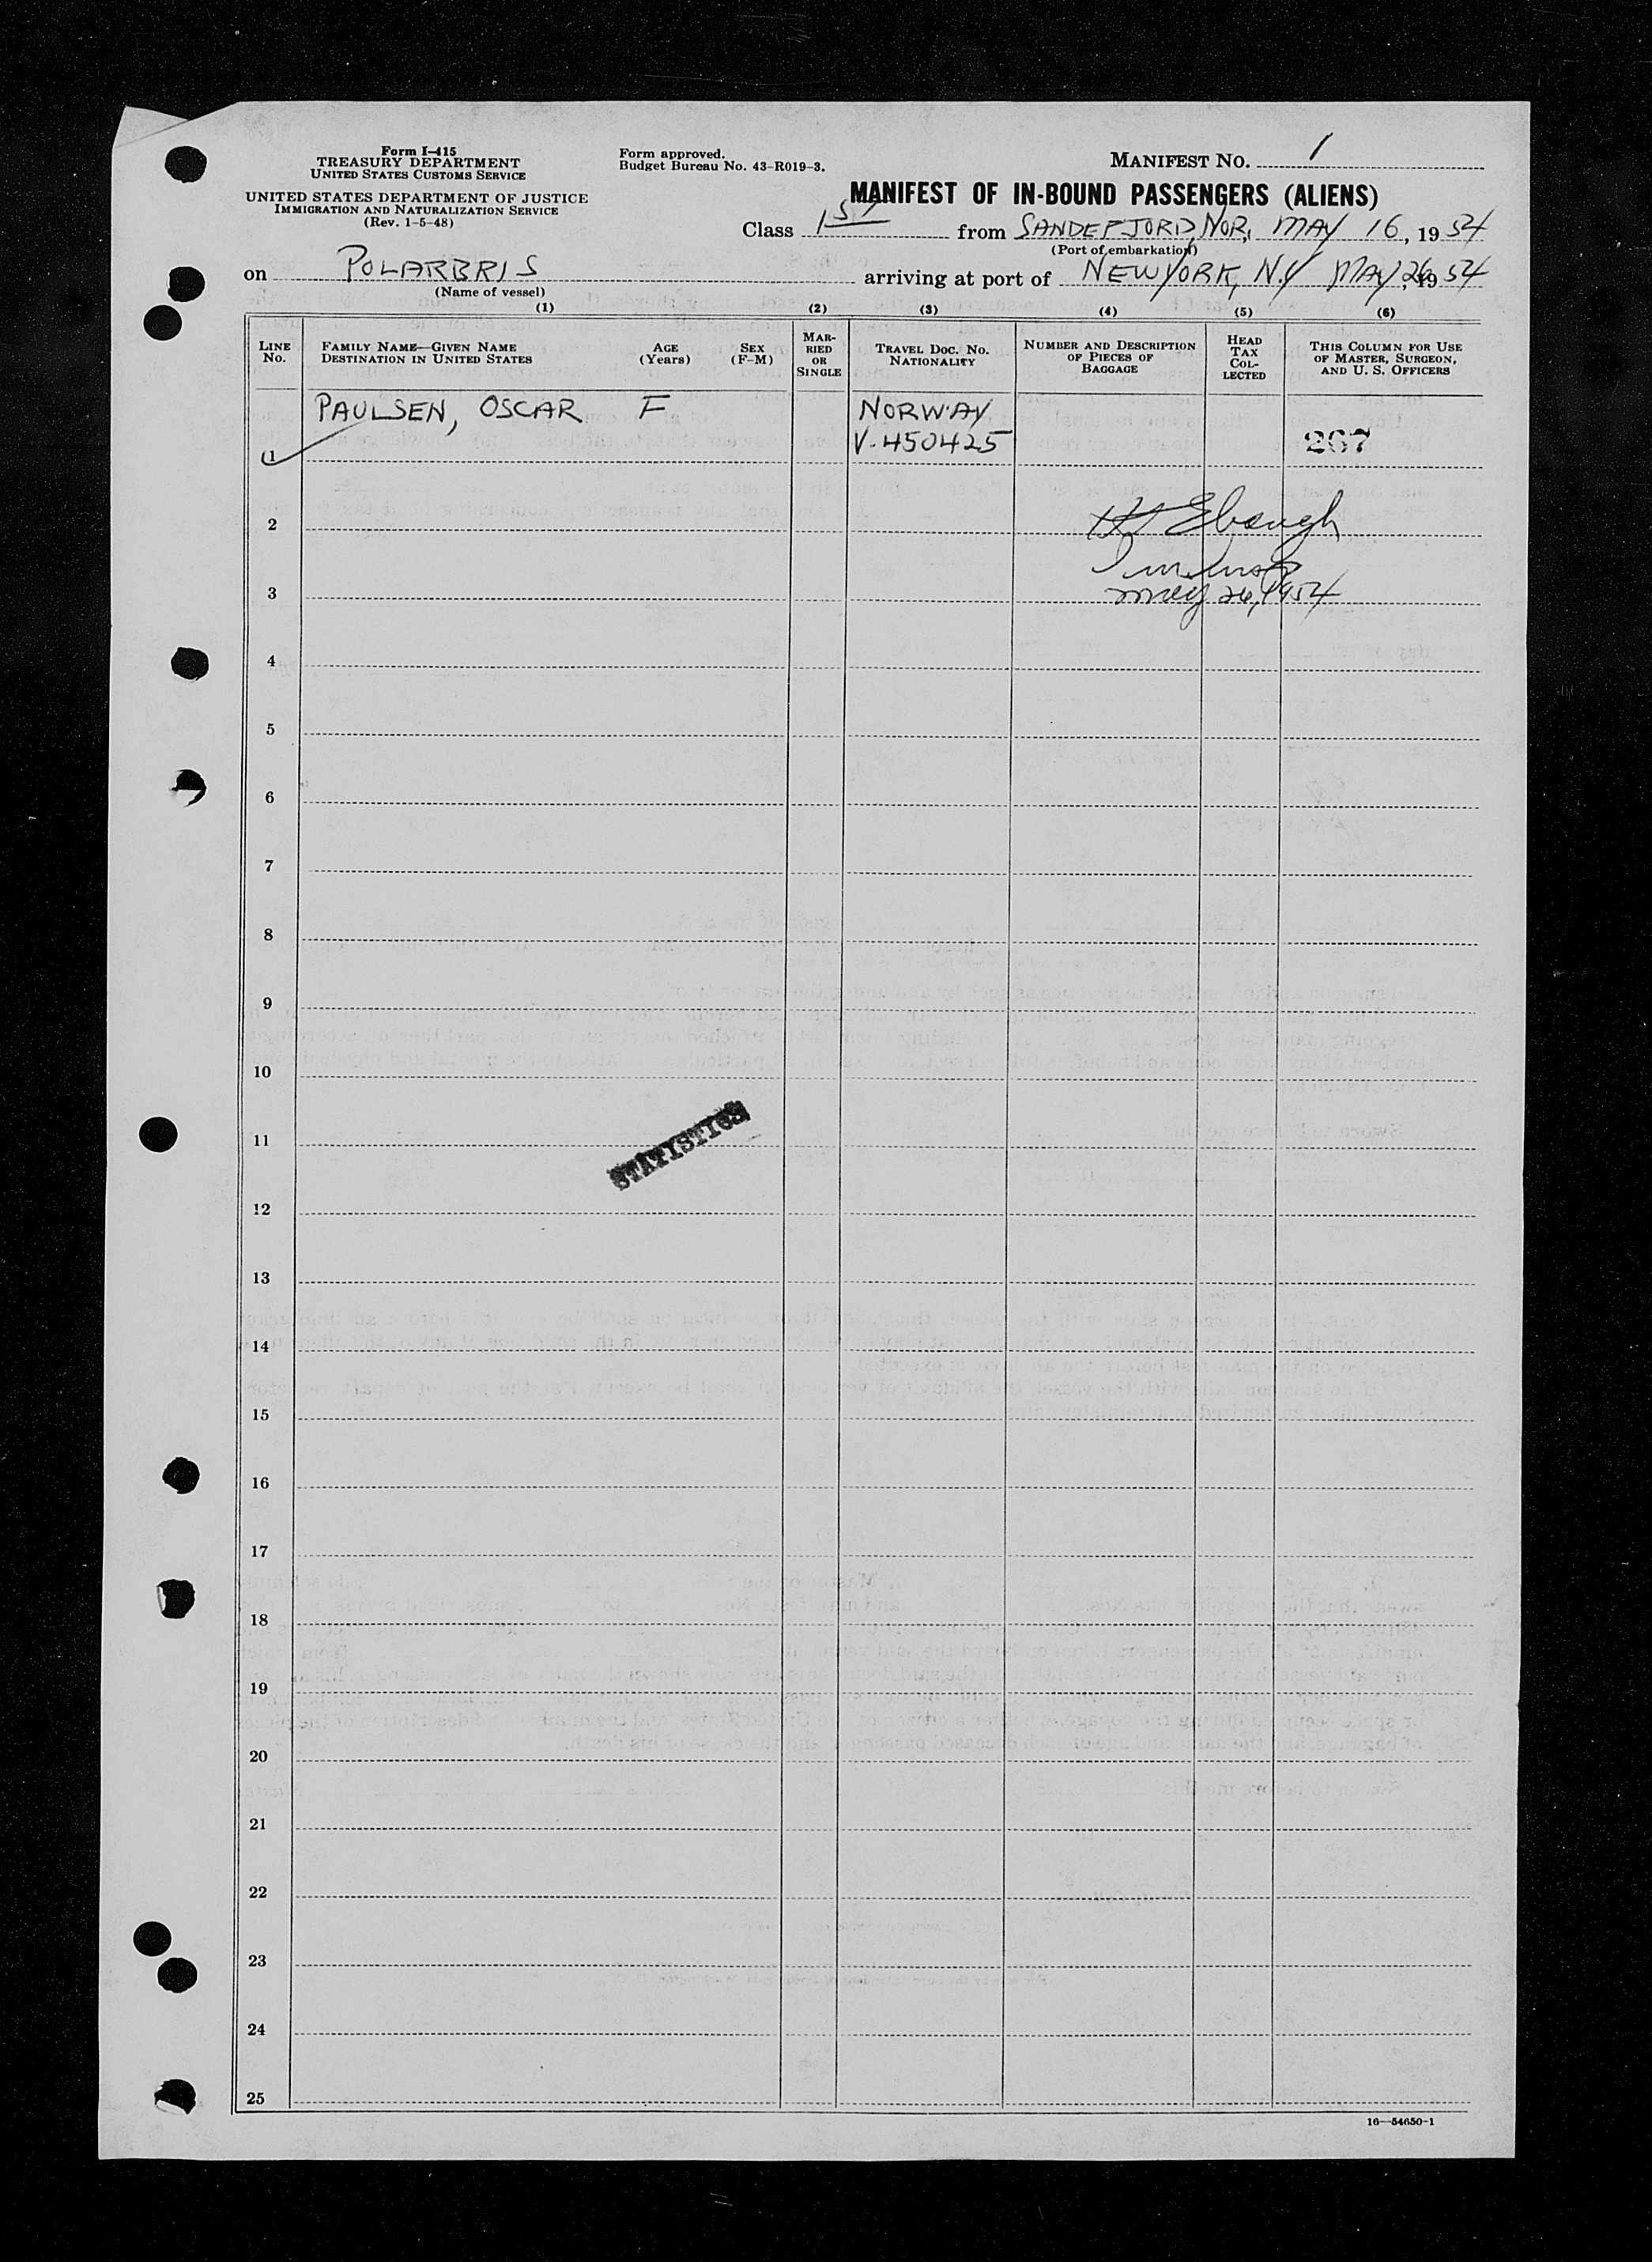 Form I-415
TREASURY DEPARTMENT
UNITED STATES CUSTOMS SERVICE
UNITED STATES DEPARTMENT OF JUSTICE
IMMIGRATION AND NATURALIZATION SERVICE
(Rev. 1-5-48)
Form approved.
Budget Bureau No. 43-R019-3.
MANIFEST NO. 1
MANIFEST OF IN-BOUND PASSENGERS (ALIENS)
Class 1ST from SANDEFJORD, NOR, MAY 16, 1954
(Port of embarkation)
on POLARBRIS arriving at port of NEW YORK, N.Y MAY 26, 1954
(Name of vessel)
(1) (2) (3) (4) (5) (6)
LINE No.
FAMILY NAME—GIVEN NAME
DESTINATION IN UNITED STATES
AGE (Years)
SEX (F-M)
MARRIED OR SINGLE
TRAVEL DOC. NO.
NATIONALITY
NUMBER AND DESCRIPTION OF PIECES OF BAGGAGE
HEAD TAX COLLECTED
THIS COLUMN FOR USE OF MASTER, SURGEON, AND U. S. OFFICERS
PAULSEN, OSCAR F NORWAY
1 V-450425 267
2 Ebaugh
3 May 26, 1954
4
5
6
7
8
9
10
11
STATISTICS
12
13
14
15
16
17
18
19
20
21
22
23
24
25
16—54650-1